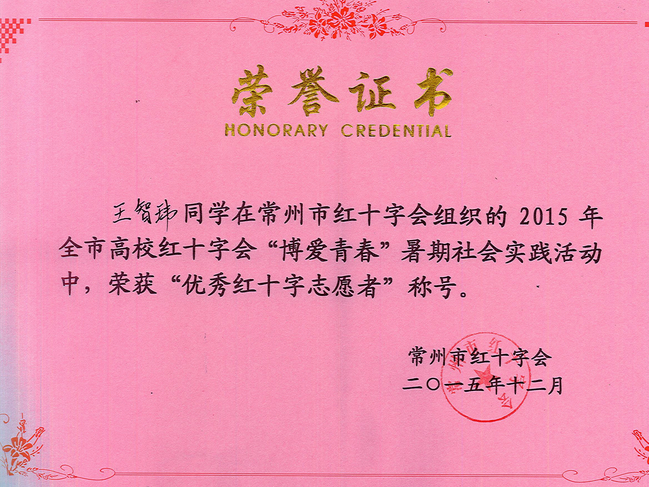 荣誉证书
HONORARY CREDENTIAL
王智玮同学在常州市红十字会组织的 2015 年
全市高校红十字会“博爱青春”暑期社会实践活动
中，荣获“优秀红十字志愿者”称号。
常州市红十字会
二〇一五年十二月
常州市红十字会